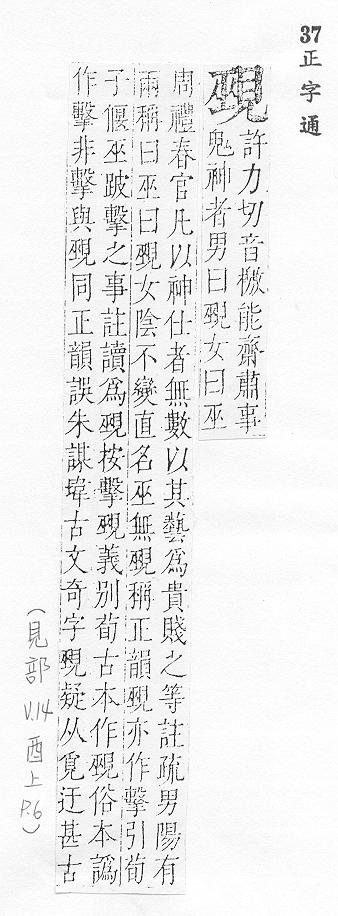 37 正字通
覡
許力切音檄能齋肅事
鬼神者男曰覡女曰巫
周禮春官凡以神仕者無數以其藝爲貴賤之等註疏男陽有
兩稱曰巫曰覡女陰不變直名巫無覡稱正韻覡亦作擊引荀
子偃巫跛擊之事註讀爲覡按擊覡義別荀古本作覡俗本譌
作擊非擊與覡同正韻誤朱謀㙔古文奇字覡疑从覓迂甚古
(見部 V.14 酉上 P.6)